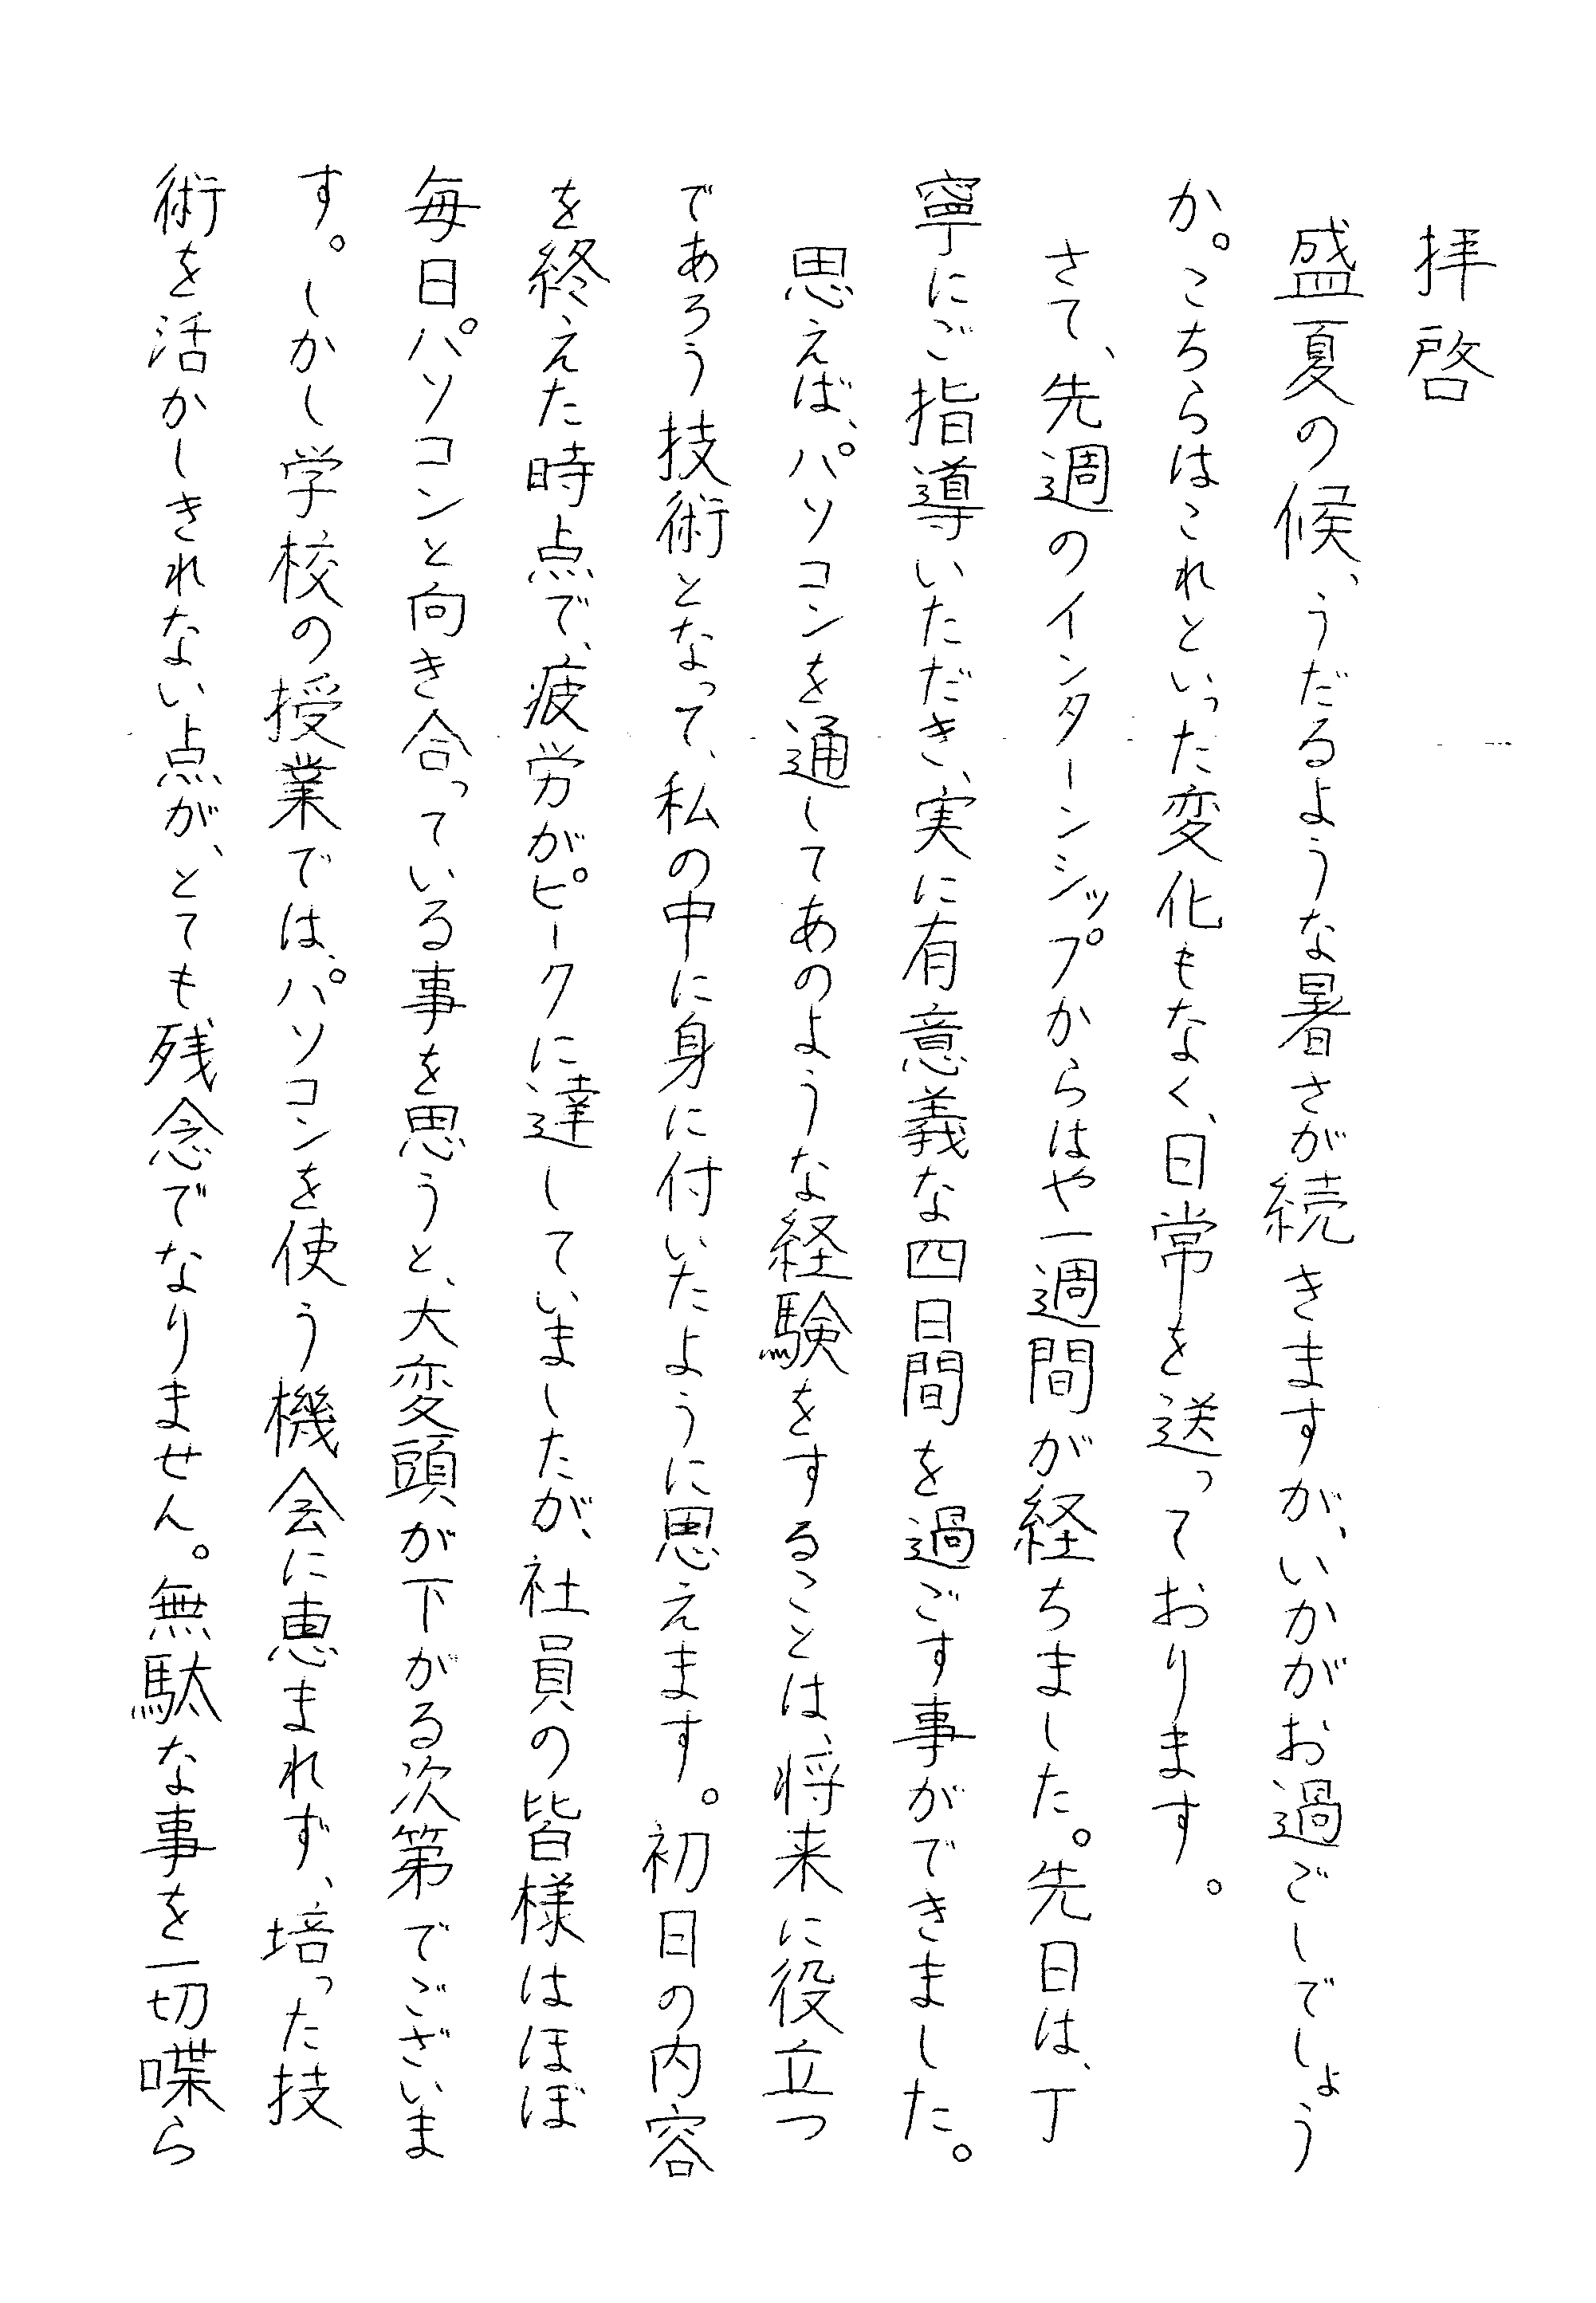 拝啓
盛夏の候、うだるような暑さが続きますが、いかがお過ごしでしょう
か。こちらはこれといった変化もなく、日常を送っております。
さて、先週のインターンシップからはや一週間が経ちました。先日は、丁
寧にご指導いただき、実に有意義な四日間を過ごす事ができました。
思えば、パソコンを通してあのような経験をすることは、将来に役立つ
であろう技術となって、私の中に身に付いたように思えます。初日の内容
を終えた時点で、疲労がピークに達していましたが、社員の皆様はほぼ
毎日パソコンと向き合っている事を思うと、大変頭が下がる次第でございま
す。しかし学校の授業では、パソコンを使う機会に恵まれず、培った技
術を活かしきれない点が、とても残念でなりません。無駄な事を一切喋ら